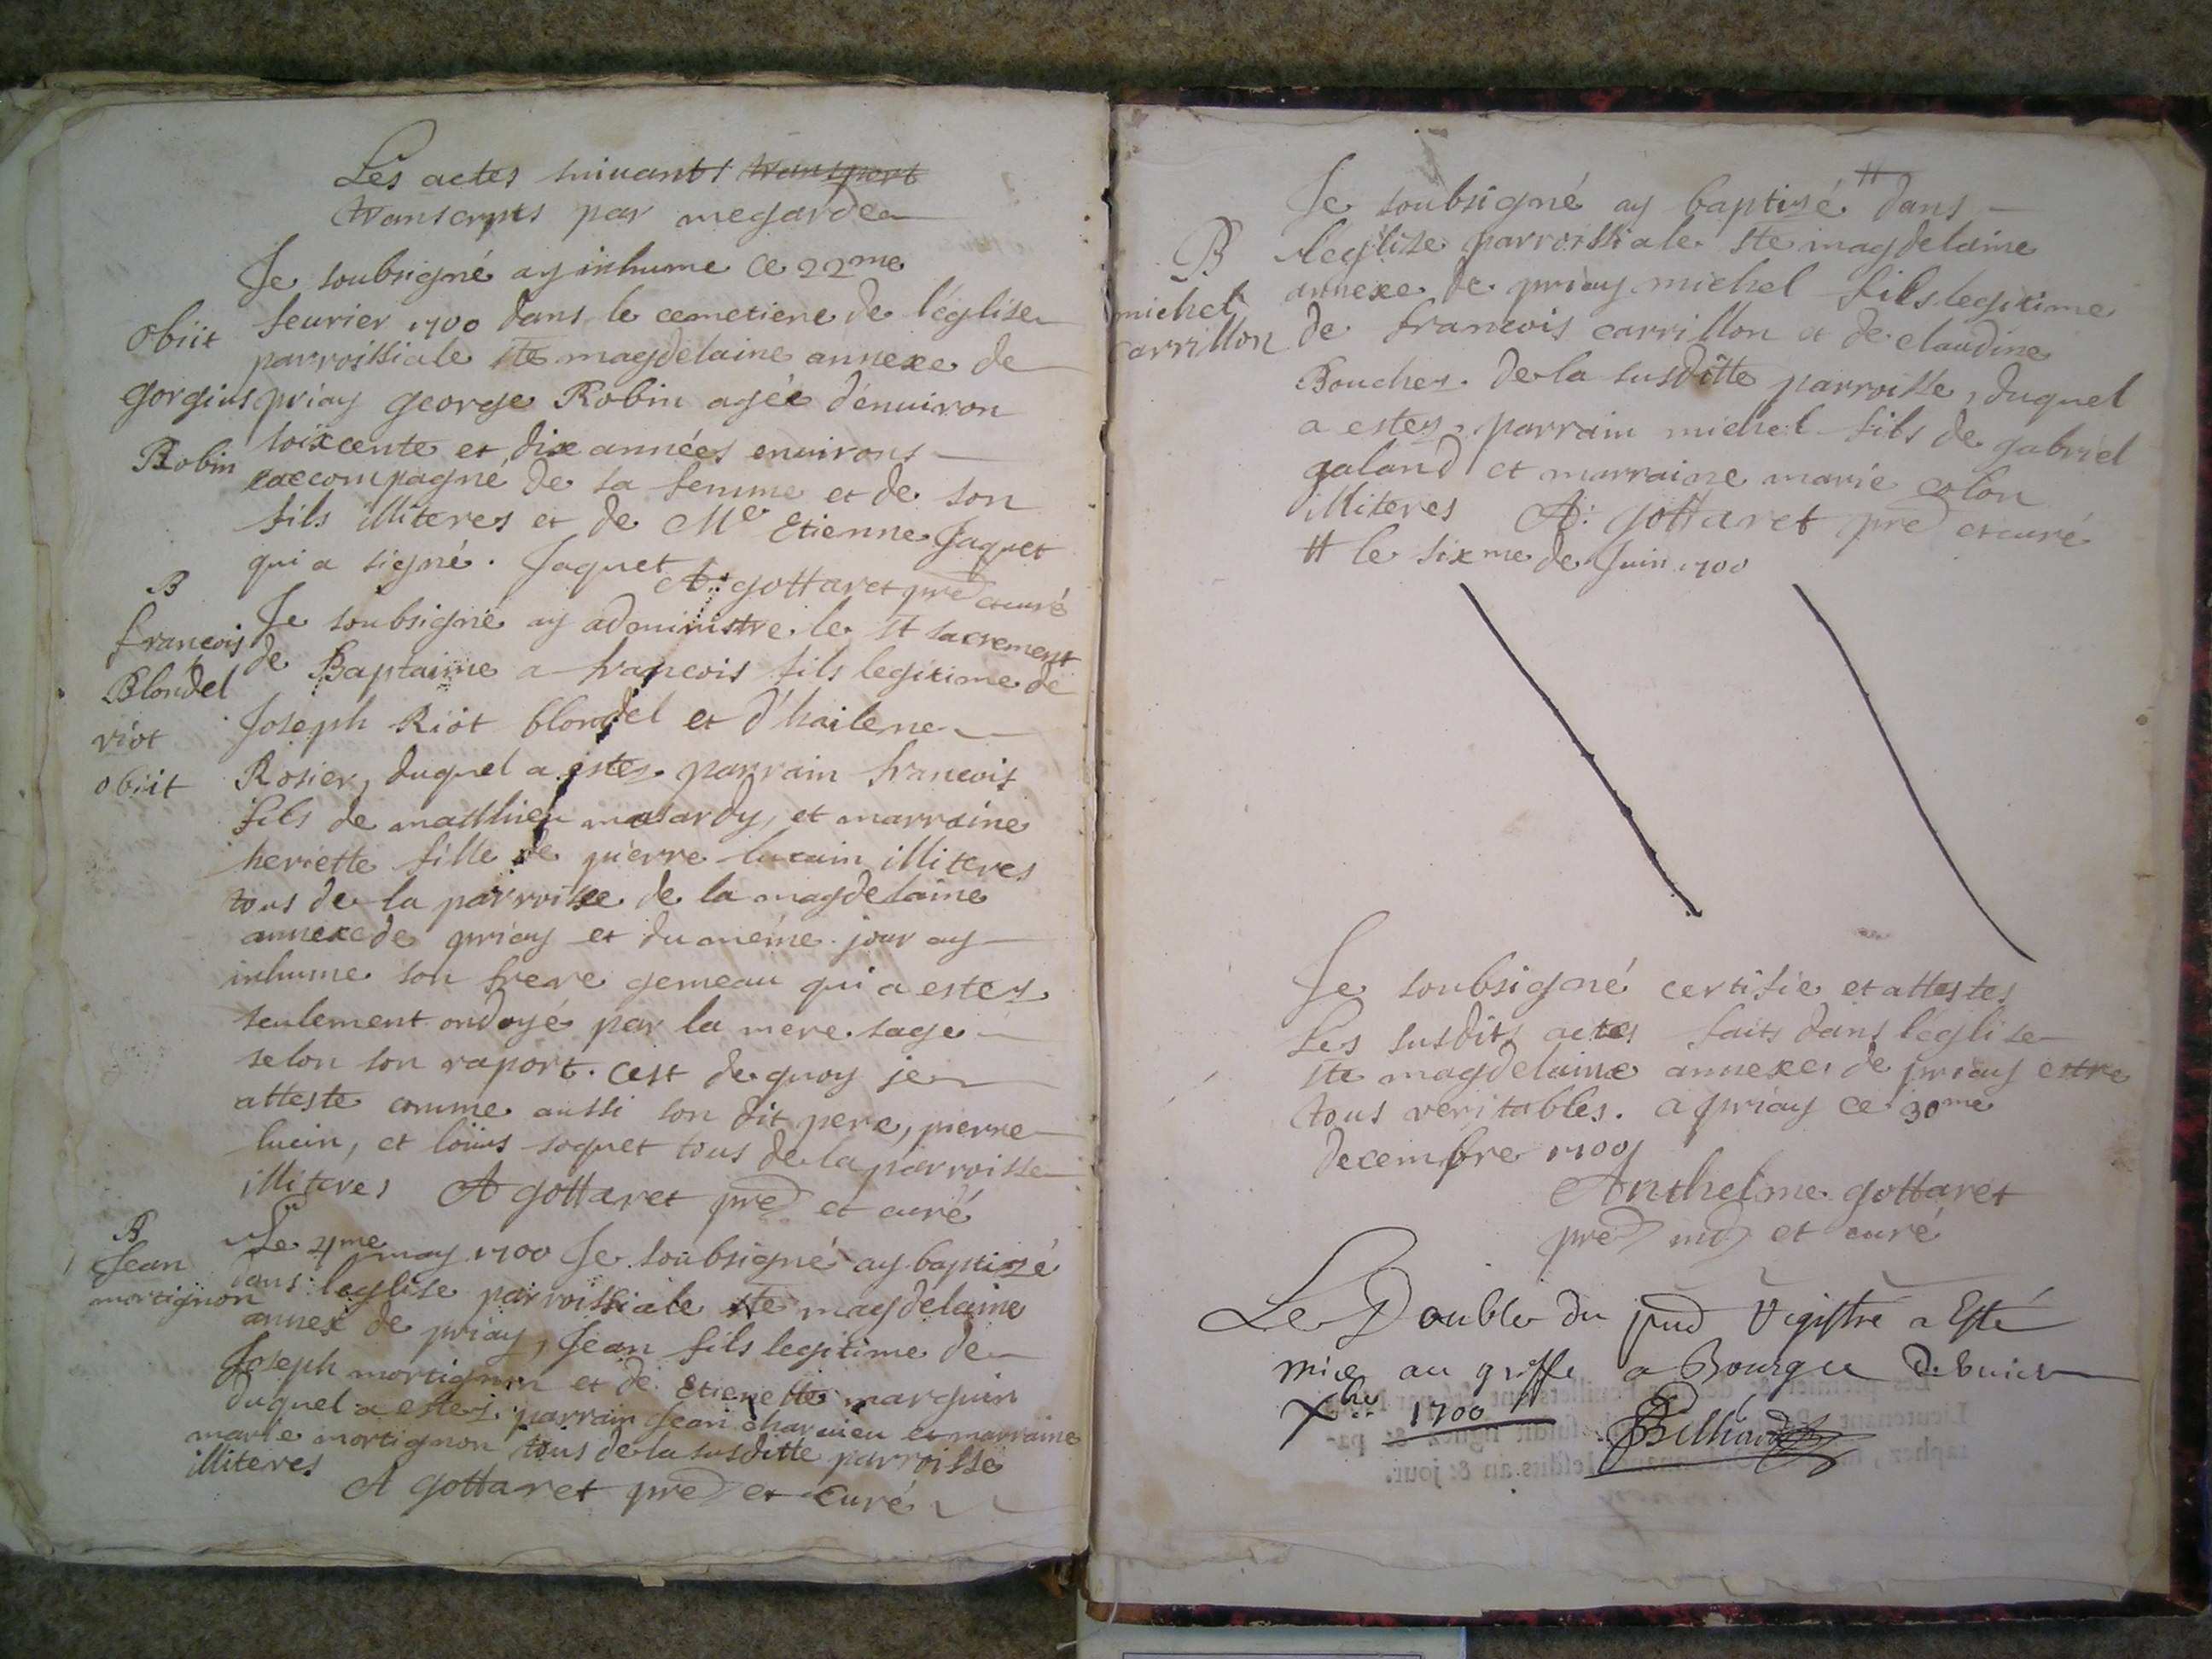 Les actes suivants transport
transcripts par megarde
Je soubsigné ay inhume ce 22me
feurier 1700 dans le cemetiere de l'églize
parroissiale ste magdelaine annexe de
priay george Robin agée d'enuiron
soixcente et dix années enuirons
accompagné de sa femme et de son
fils illiteres et de Me Etienne Jaquet
qui a signé. Jaquet
A: gottaret pre et curé
obiit
gorgius
Robin
Je soubsigné ay administre le st sacrement
de Baptaime a francois fils legitime de
Joseph Riot blondel et d'hailene
Rosier, duquel a estez parrain francois
fils de matthieu masardy, et marraine
heriette fille de pierre lucain illiteres
tous de la parroisse de la magdelaine
annexe de priay et du méme jour ay
inhume son frere gemeau qui a estez
seulement ondoyé par la mere sage
selon son raport. cest de quoy je
atteste comme aussi son dit pere, pierre
lucin, et loüis soquet tous de la parroisse
illiteres A gottaret pre et curé
B
francois
Blondel
riot
obiit
Le 4me may 1700 Je soubsigné ay baptizé
dans leglise parroissiale ste magdelaine
annex de priay, Jean fils legitime de
Joseph mortignon et de Etienette marguin
duquel a estez parrain Jean charuieu et marraine
marie mortignon tous de la susditte parroisse
illiteres
A gottaret pre et Curé
B
Jean
mortignon
Je soubsigné ay baptizé # dans
leglize parroissiale ste magdelaine
annexe de priay michel fils legitime
de francois carrillon et de claudine
Bouchez de la susditte parroisse, duquel
a estez parrain michel fils de gabriel
galand et marraine marie colon
illiteres A: gottaret pre et curé
# le sixme de Juin 1700
B
michel
carrillon
Je soubsigné certifie et attestes
Les susdits actes faits dans léglise
ste magdelaine annexe de priay estre
tous veritables. a priay ce 30me
decembre 1700
Anthelme gottaret
pre et curé
Le Double du pnd Registre a Esté
mis au greffe a Bourg ce
Xbre 1700